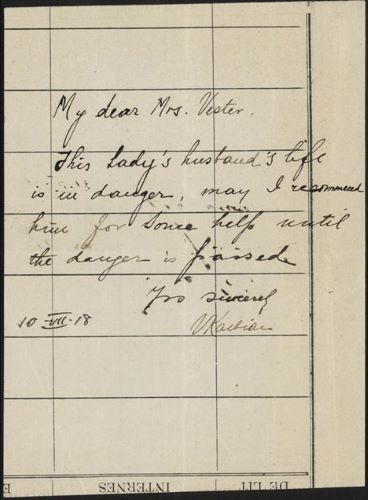 My dear Mrs. Vester.
This Lady's husband's life
is in danger, may I recommend
him for some help until
the danger is passed
Yrs sincerely
10-VII-18
DE LIT
INTERNES